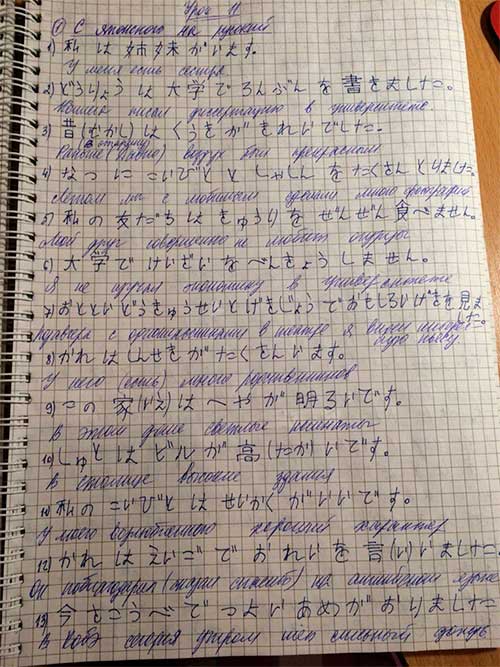 Урок 11
① С японского на русский
1) 私は姉妹がいます。
У меня есть сестра
2) どうりょうは大学でろんぶんを書きました。
Коллега писал диссертацию в университете
3) 昔(むかし)はくうきがきれいでした。
Раньше (давно) воздух был прекрасным
4) なつにこいびととしゃしんをたくさんとりました。
Летом мы с любимым сделали много фотографий
5) 私の友だちはきゅうりをぜんぜん食べません。
Мой друг совершенно не любит огурцы
6) 大学でけいざいをべんきょうしません。
Я не изучаю экономику в университете
7) おとといどうきゅうせいとげきじょうでおもしろいげきを見ました。
Позавчера с одноклассниками в театре я видел пьесу
8) かれはしんせきがたくさんいます。
У него (есть) много родственников
9) この家(いえ)はへやが明るいです。
В этом доме светлые комнаты
10) しゅとはビルが高(たか)いです。
В столице высокие здания
私のこいびとはせいかくがいいです。
У моего возлюбленного хороший характер
12) かれはえいごでおれいを言(い)いました。
Он поблагодарил (сказал спасибо) на английском языке
13) 今さこうべでつよいあめがおりました
В Кобэ сегодня утром шёл сильный дождь